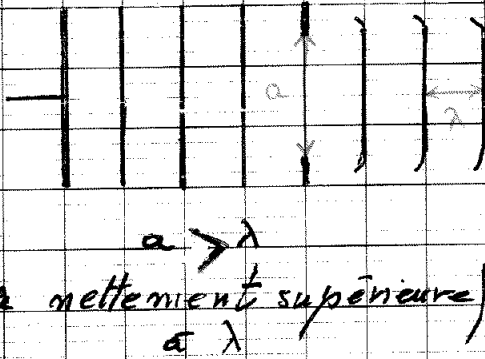 a
λ
a > λ
a nettement supérieure
à λ